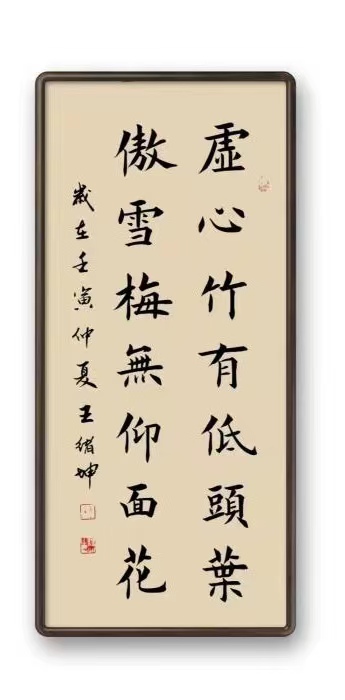 虛心竹有低頭葉
傲雪梅無仰面花
歲在壬寅仲夏王緒坤